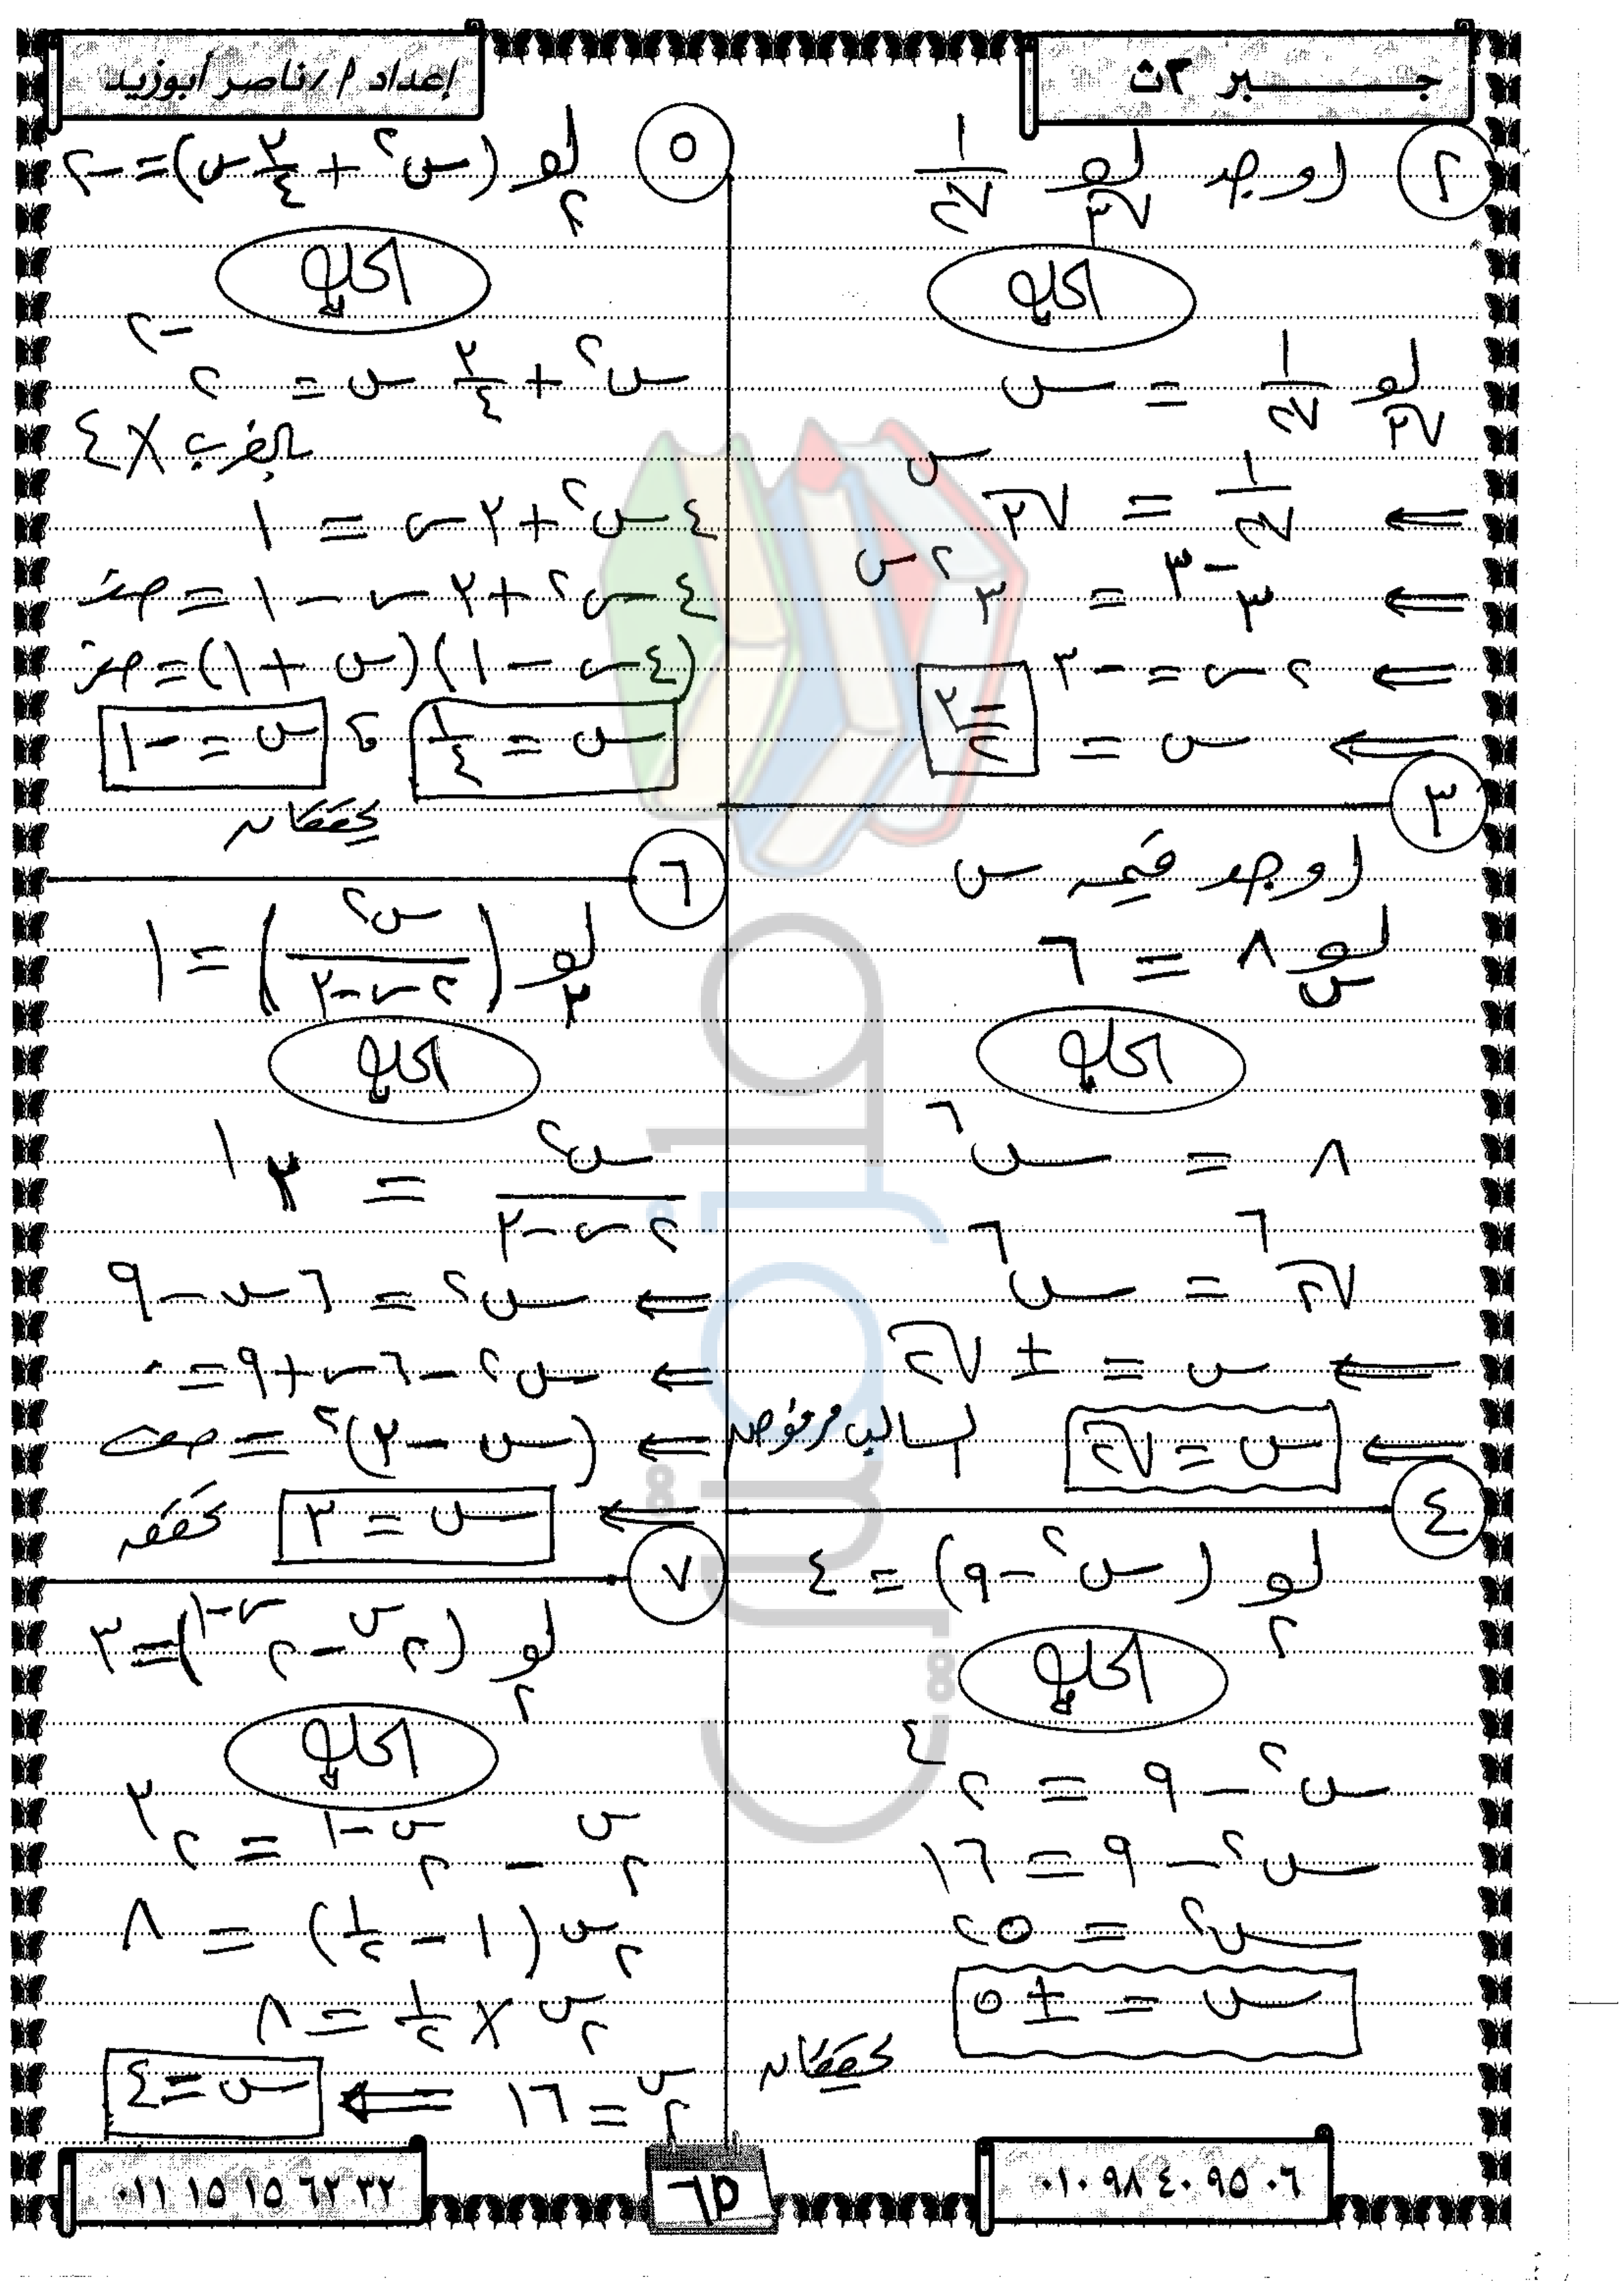 جبر ٢ث
إعداد أ/ناصر أبوزيد
٢ اوجد لو٣√ ١/٢٧
الحل
لو٣√ ١/٢٧ = س
⇐ ١/٢٧ = ٣√^س
⇐ ٣^-٣ = ٣^
⇐ ٢س = -٣
⇐ س = -٣/٢
٣
اوجد قيمة س
لوس ٨ = ٦
الحل
٨ = س^٦
٢√^٦ = س^٦
⇐ س = ± ٢√
⇐ س = ٢√ السالب مرفوض
٤
لو٢ (س^٢ - ٩) = ٤
الحل
س^٢ - ٩ = ٢^٤
س^٢ - ٩ = ١٦
س^٢ = ٢٥
س = ± ٥
تحققان
٥ لو٢ (س^٢ + ٣/٤ س) = -٢
الحل
س^٢ + ٣/٤ س = ٢^-٢
بالضرب × ٤
٤س^٢ + ٣س = ١
٤س^٢ + ٣س - ١ = صفر
(٤س - ١)(س + ١) = صفر
س = ١/٤ ، س = -١
تحققان
٦
لو٣ (س^٢/(٢س-٣)) = ١
الحل
س^٢/(٢س-٣) = ٣^١
⇐ س^٢ = ٦س - ٩
⇐ س^٢ - ٦س + ٩ = ٠
⇐ (س - ٣)^٢ = صفر
⇐ س = ٣ تحقق
٧
لو٢ (٢^س - ٢^(س-١)) = ٣
الحل
٢^س - ٢^(س-١) = ٢^٣
٢^س (١ - ١/٢) = ٨
٢^س × ١/٢ = ٨
٢^س = ١٦ ⇐ س = ٤
٠١٠ ٩٨ ٤٠ ٩٥ ٠٦
٦٥
٠١١ ١٥ ١٥ ٦٢ ٣٢